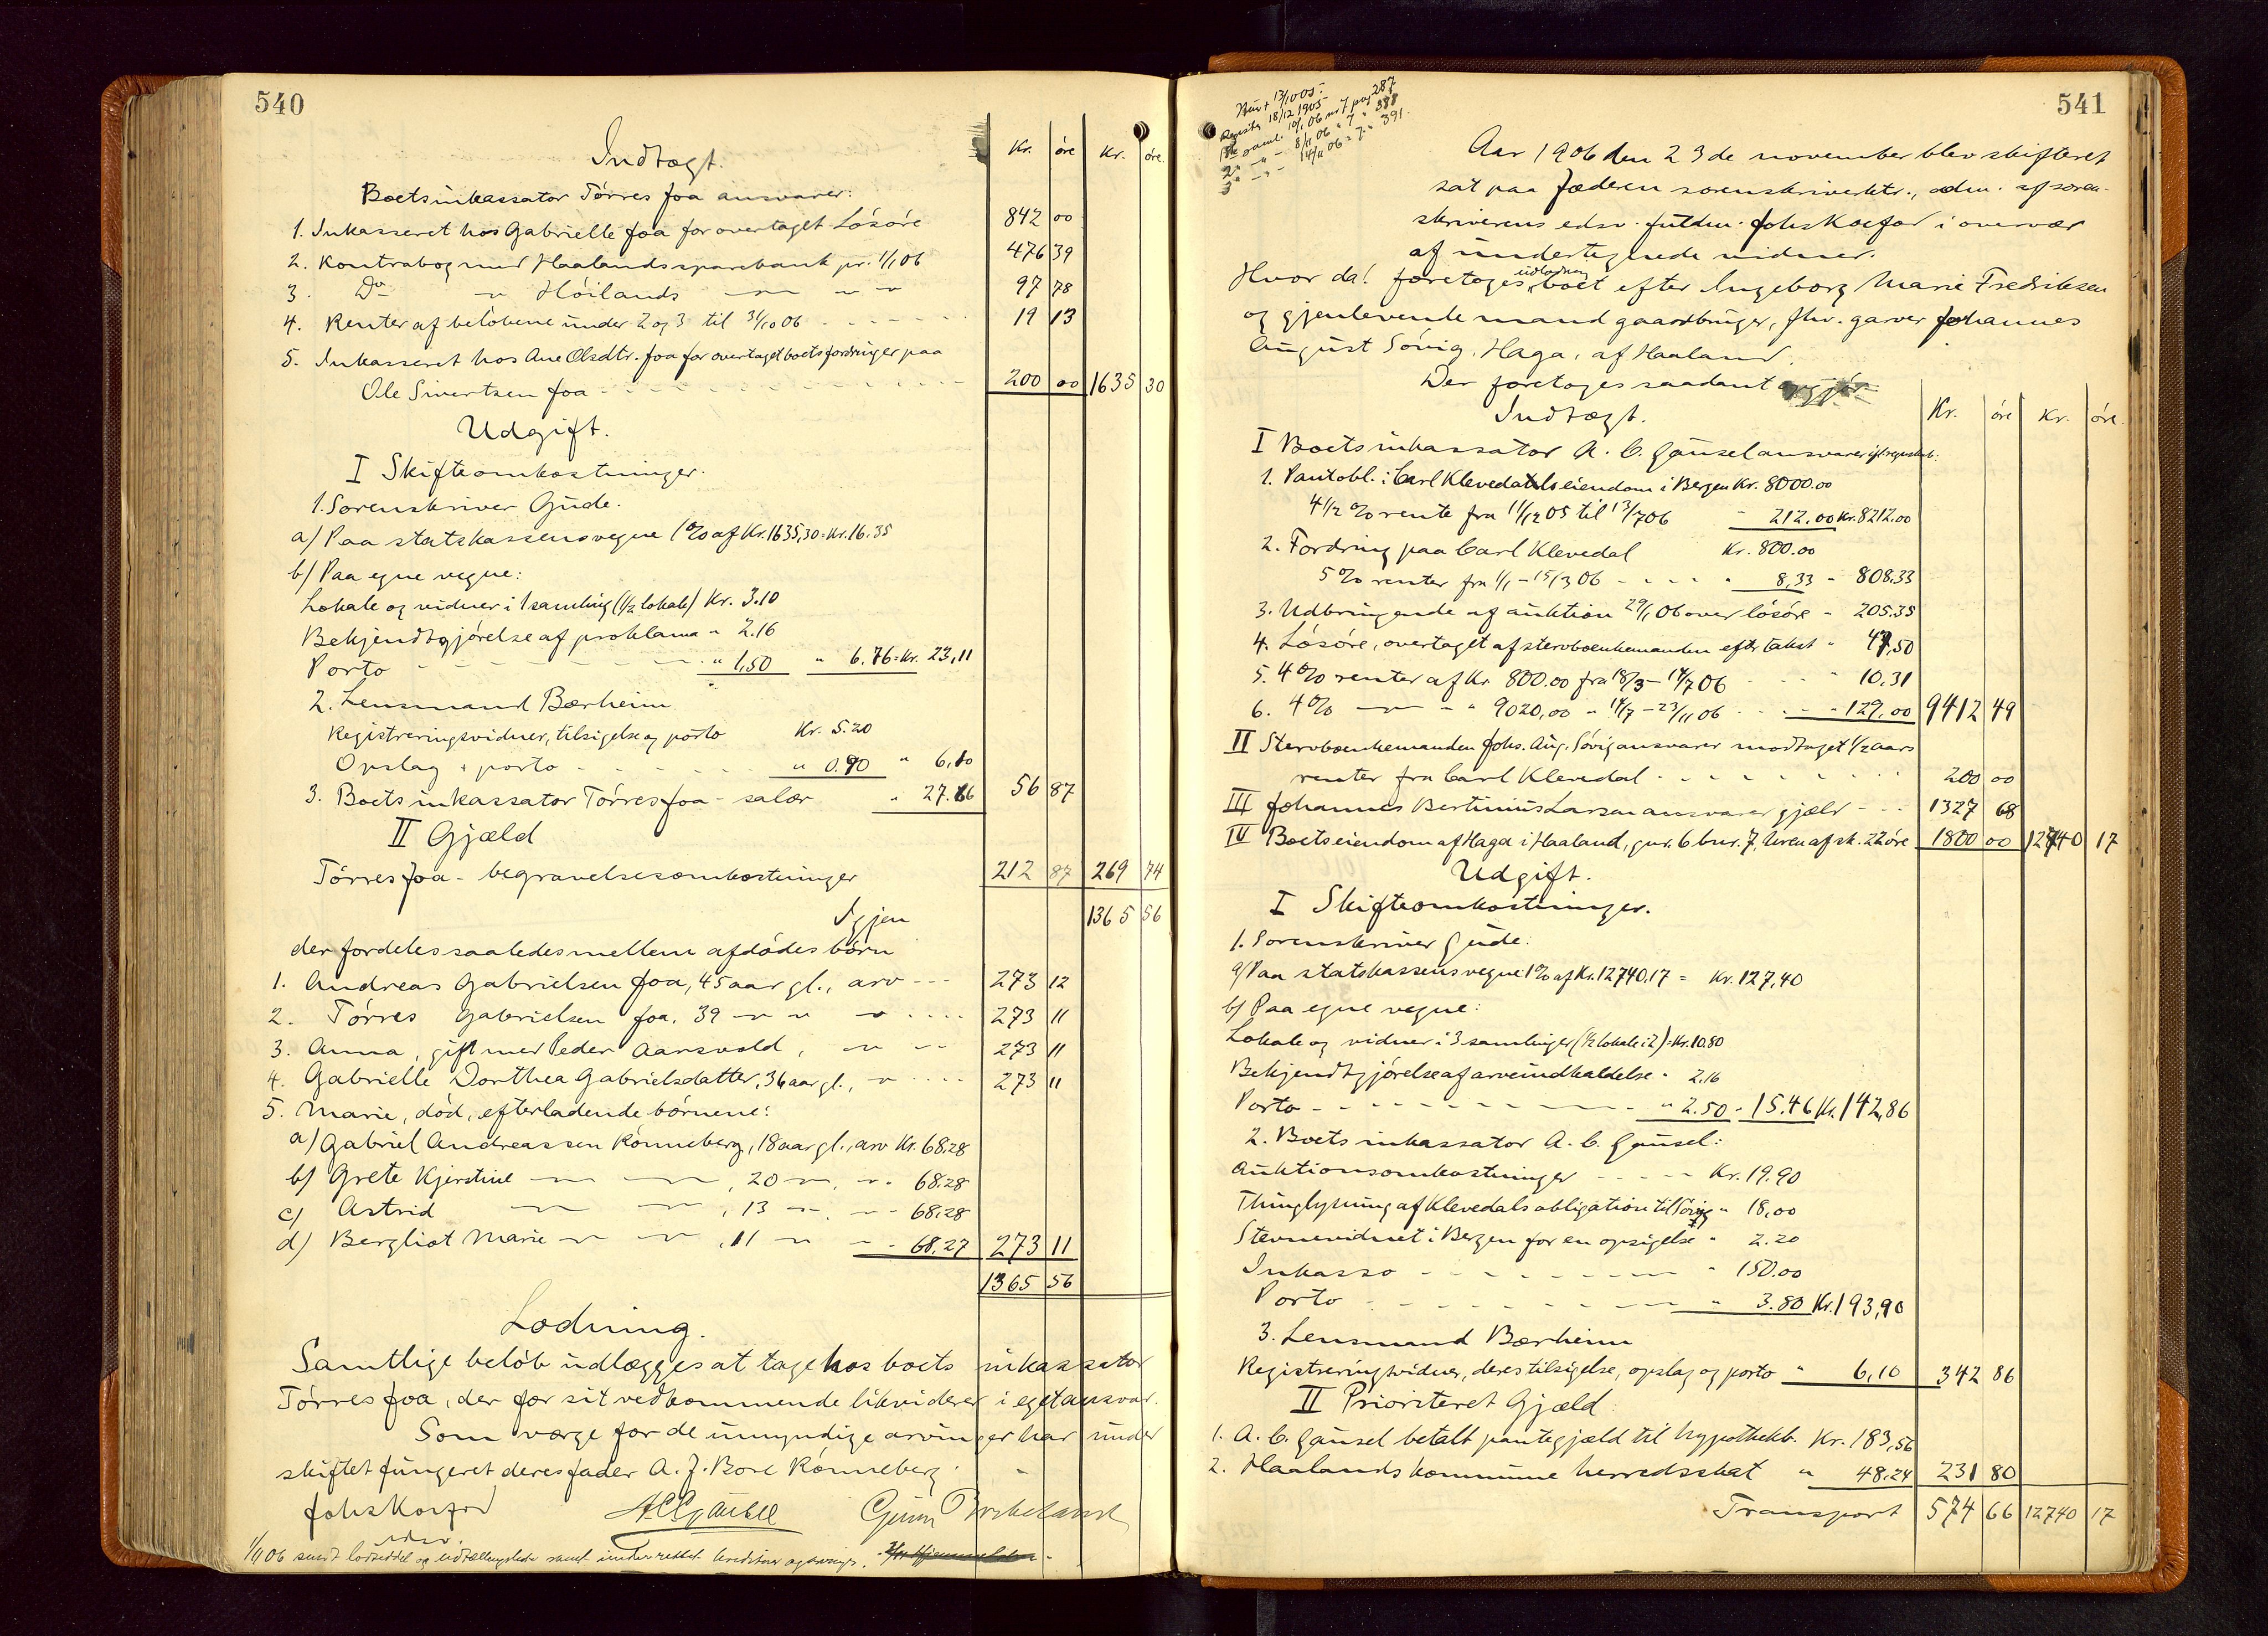 540
Indtægt.
Kr. øre Kr. øre.
Boets inkassator Tørres Joa ansvarer:
1. Inkasseret hos Gabrielle Joa for overtaget Løsøre 842 00
2. Kontrabog med Haalands sparebank pr. 1/1 06 476 39
3. Do " Høilands — " " 97 78
4. Renter af beløbene under 2 og 3 til 31/10 06 19 13
5. Inkasseret hos Ane Olsdtr. Joa for overtaget boets fordringer paa
Ole Sivertsen Joa 200 00 1635 30
Udgift.
I Skifteomkostninger.
1. Sorenskriver Gude.
a) Paa statskassens vegne 1% af Kr. 1635,30 = Kr. 16.35
b) Paa egne vegne:
Lokale og vidner i 1 samling (1/2 lokale) Kr. 3.10
Bekjendtgjørelse af proklama " 2.16
Porto " 1,50 " 6.76 = Kr. 23,11
2. Lensmand Bærheim
Registreringsvidner, tilsigelse og porto Kr. 5.20
Opslag + porto " 0.90 " 6,10
3. Boets inkassator Tørres Joa - salær " 27.66 56 87
II Gjæld
Tørres Joa - begravelsesomkostninger 212 87 269 74
Igjen 1365 56
der fordeles saaledes mellem afdødes børn
1. Andreas Gabrielsen Joa, 45 aar gl., arv 273 12
2. Tørres Gabrielsen Joa, 39 — " — " 273 11
3. Anna, gift med Peder Aarsvold, — " — 273 11
4. Gabrielle Dorthea Gabrielsdatter, 36 aar gl., — " 273 11
5. Marie, død, efterladende børnene:
a) Gabriel Andreassen Rønneberg, 18 aar gl., arv Kr. 68.28
b) Grete Kjerstine — " — — " —, 20 — " —, — " - 68.28
c) Astrid — " — — " —, 13 — " —, — " - 68.28
d) Bergliot Marie — " — — " —, 11 — " — — " - 68.27 273 11
1365 56
Lodning.
Samtlige beløb udlægges at tage hos boets inkassator
Tørres Joa, der for sit vedkommende likviderer i eget ansvar.
Som værge for de umyndige arvinger har under
skiftet fungeret deres fader A. J. Bore Rønneberg.
Johs Koefod AC Gausel Gunn
edsv.
1/11 06 sendt lodseddel og udtællingsliste samt underrettet kreditorer og arvinger.
541
13/10 05
Registr. 18/12 1905
1ste saml. 10/1 06 no 7 pag 287
2" — " — 8/11 06 " 7 " 388
3" — " — 14/11 06 " 7 " 391.
Aar 1906 den 23de november blev skifteret
sat paa Jæderen sorenskriverktr., adm. af soren-
skriverens edsv. fuldm. Johs Koefod i overvær
af undertegnede vidner.
Hvor da! foretoges udlodning i boet efter Ingeborg Marie Fredriksen
og gjenlevende mand gaardbruger, fhv. garver Johannes
August Søvig, Haga, af Haaland.
Der foretoges saadant opgjør:
Indtægt.
Kr. øre Kr. øre.
I Boets inkassator A. C. Gausel ansvarer ifl. regnskab:
1. Pantobl. i Carl Klevedahls eiendom i Bergen Kr. 8000.00
4 1/2 % rente fra 11/12 05 til 13/7 06 " 212.00 Kr. 8212.00
2. Fordring paa Carl Klevedal Kr. 800.00
5% renter fra 1/1 - 15/3 06 " 8,33 - 808.33
3. Udbringende af auktion 29/1 06 over løsøre - 205.35
4. Løsøre, overtaget af stervboenkemanden efter takst " 47,50
5. 4% renter af Kr 800.00 fra 18/3 - 14/7 06 " 10.31
6. 4% — " — " " 9020,00 " 14/7 - 23/11 06 " 129,00 9412 49
II Stervboenkemanden Johs. Aug. Søvig ansvarer modtaget 1/2 aars
renter fra Carl Klevedal 200 00
III Johannes Bertinius Larsen ansvarer gjæld 1327 68
IV Boets eiendom af Haga i Haaland, gnr. 6 bnr. 7, Uren af sk. 22 øre 1800 00 12740 17
Udgift.
I Skifteomkostninger.
1. Sorenskriver Gude:
a) Paa statskassens vegne: 1% af Kr. 12740,17 = Kr. 127,40
b) Paa egne vegne:
Lokale og vidner i 3 samlinger (1/2 lokale i 2) = Kr. 10.80
Bekjendtgjørelse af arveindkaldelse - 2.16
Porto " 2.50 - 15.46 Kr. 142,86
2. Boets inkassator A. C. Gausel:
Auktionsomkostninger Kr. 19.90
Thinglysning af Klevedals obligation til Søvig " 18,00
Stevnevidnet i Bergen for en opsigelse " 2.20
Inkasso " 150.00
Porto " 3.80 Kr. 193,90
3. Lensmand Bærheim
Registreringsvidner, deres tilsigelse, opslag og porto " 6,10 342 86
II Prioriteret Gjæld
1. A. C. Gausel betalt pantegjæld til hypothekb. Kr. 183,56
2. Haalands kommune herredsskat " 48.24 231 80
Transport 574 66 12740 17